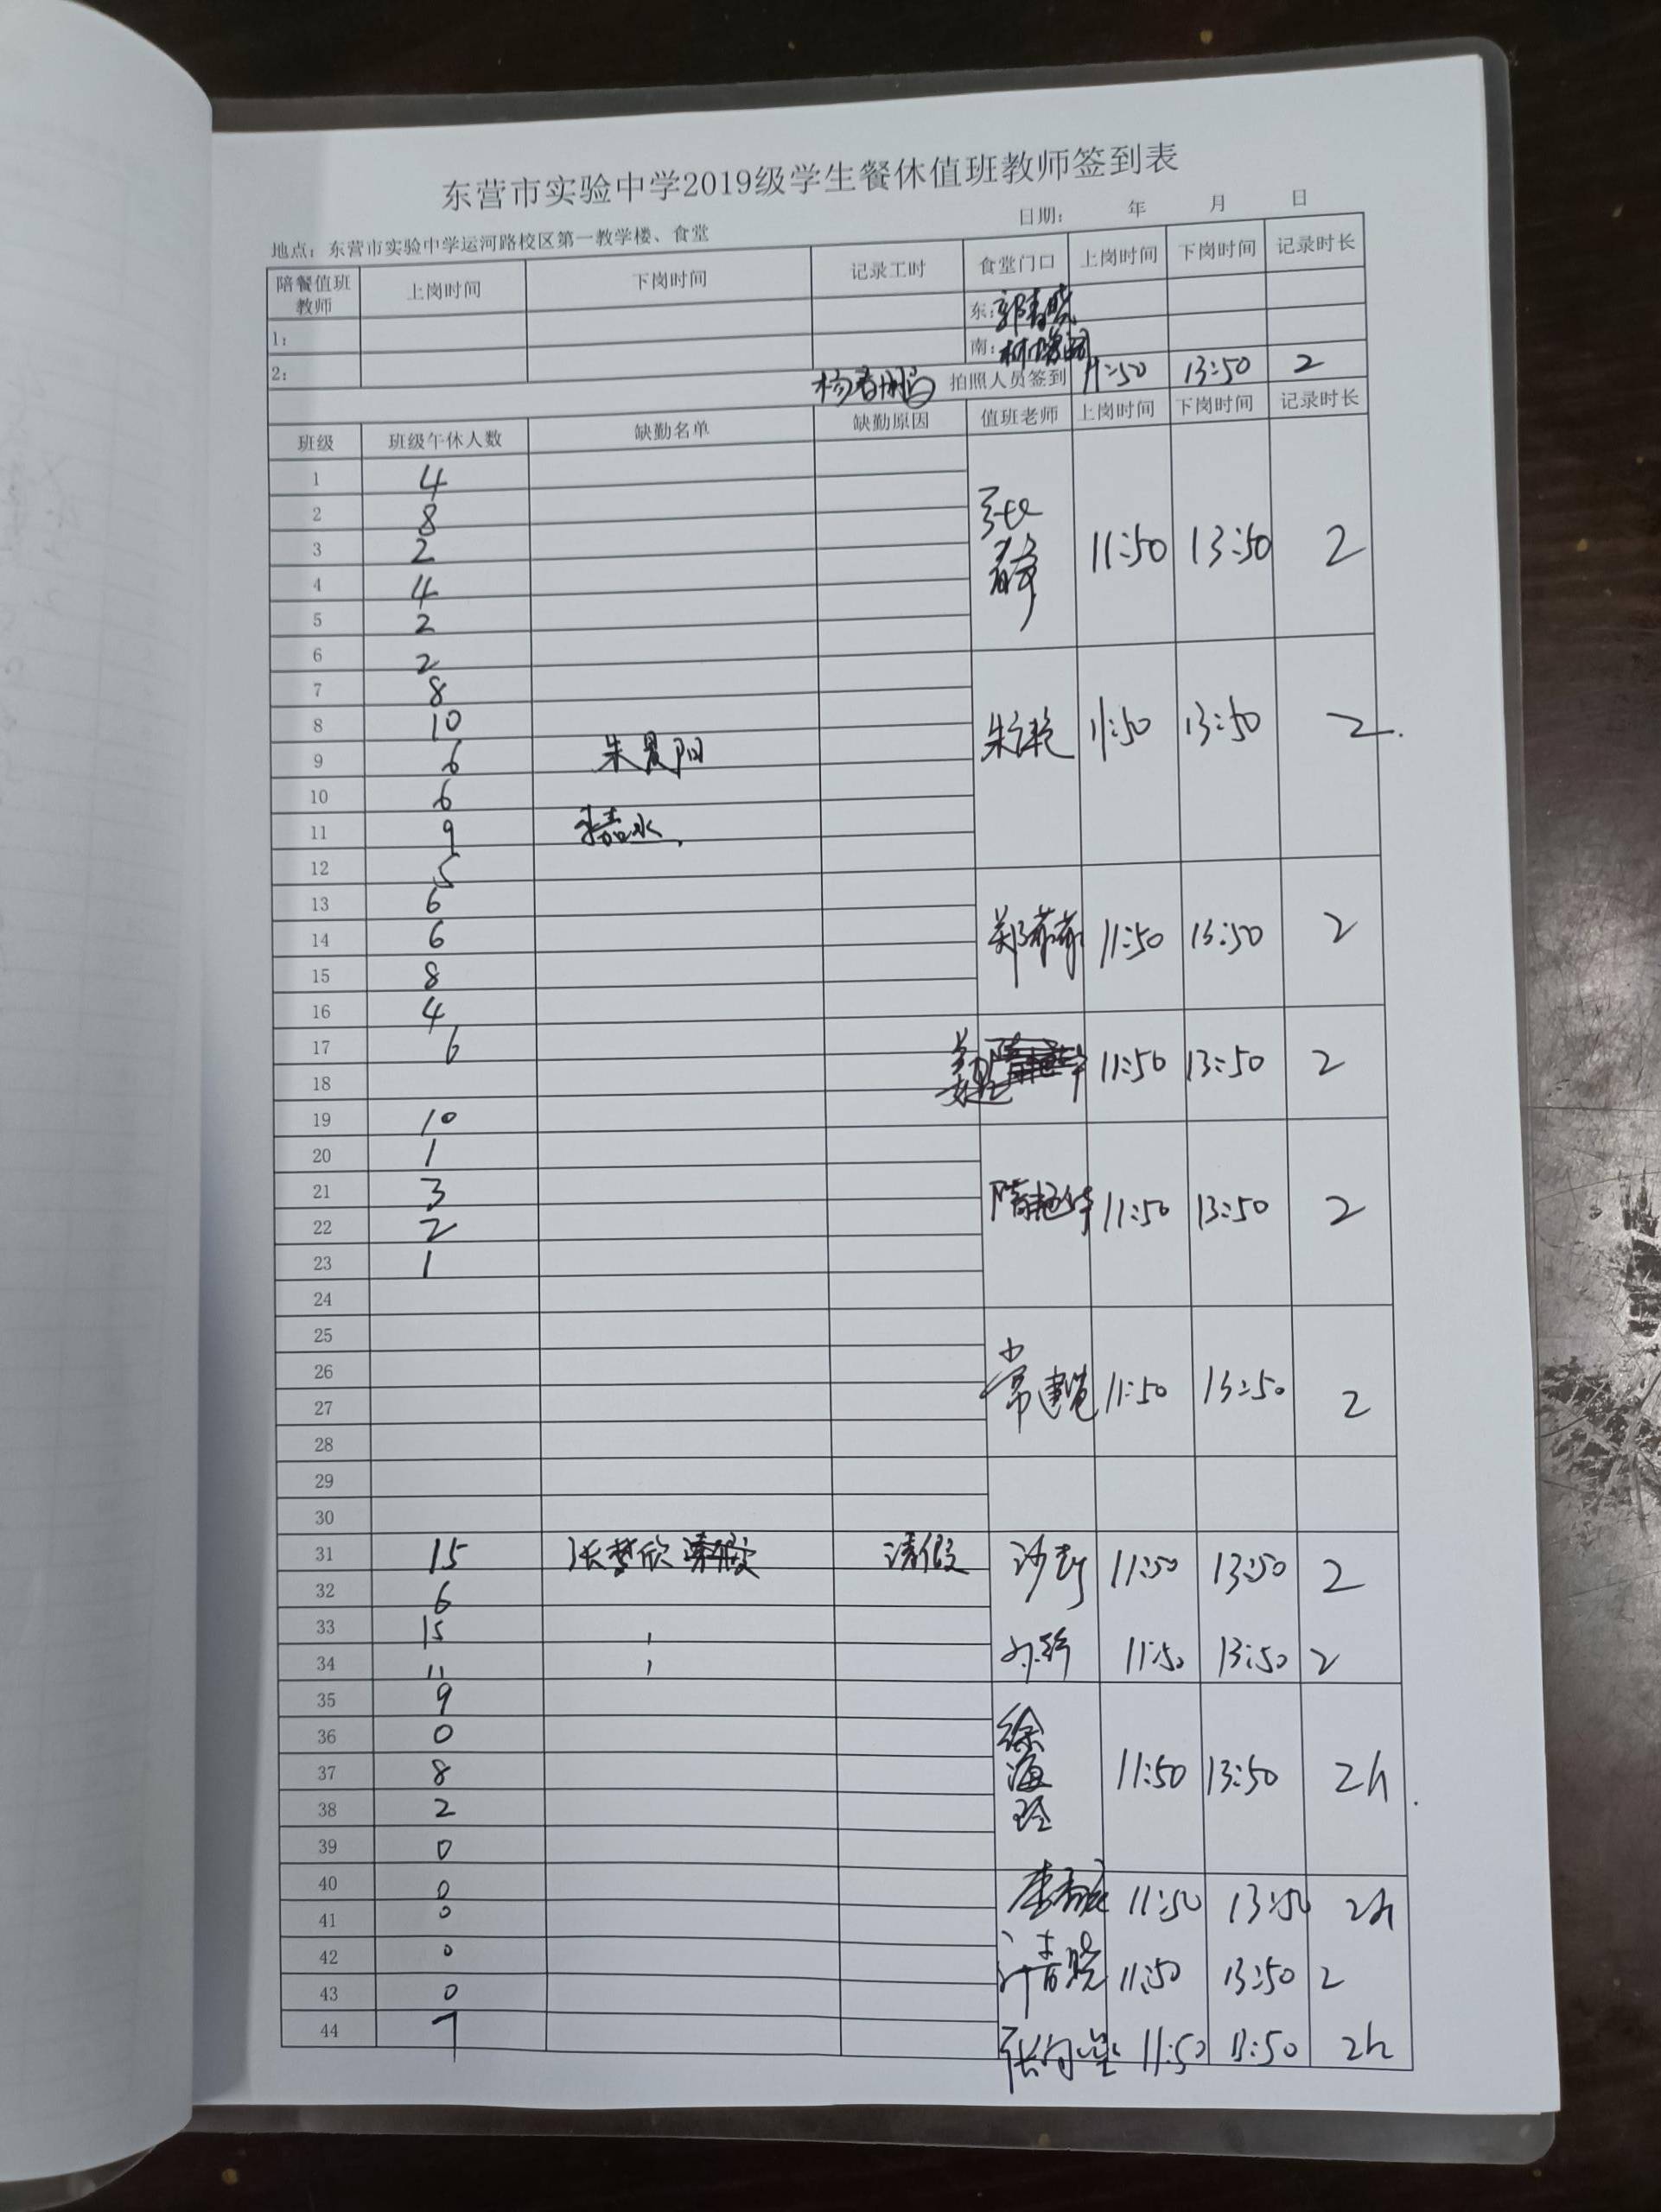 东营市实验中学2019级学生餐休值班教师签到表
地点：东营市实验中学运河路校区第一教学楼、食堂 日期： 年 月 日
陪餐值班教师 上岗时间 下岗时间 记录工时 食堂门口 上岗时间 下岗时间 记录时长
1： 东：郭青晓
2： 南：
拍照人员签到 11:50 13:50 2
班级 班级午休人数 缺勤名单 缺勤原因 值班老师 上岗时间 下岗时间 记录时长
1 4
2 8
3 2 张静 11:50 13:50 2
4 4
5 2
6 2
7 8
8 10 朱 艳 11:50 13:50 2
9 6 朱晨阳
10 6
11 9 嘉水
12 5
13 6
14 6 郑茹茹 11:50 13:50 2
15 8
16 4
17 6 11:50 13:50 2
18
19 10
20 1
21 3 隋艳华 11:50 13:50 2
22 2
23 1
24
25
26 常建 11:50 13:50 2
27
28
29
30
31 15 张梦欣 请假 请假 沙 11:50 13:50 2
32 6
33 15
34 11 11:50 13:50 2
35 9
36 0
37 8 徐海玲 11:50 13:50 2h
38 2
39 0
40 0 李 11:50 13:50 2h
41 0
42 0 许青晓 11:50 13:50 2
43 0
44 7 张 11:50 13:50 2h